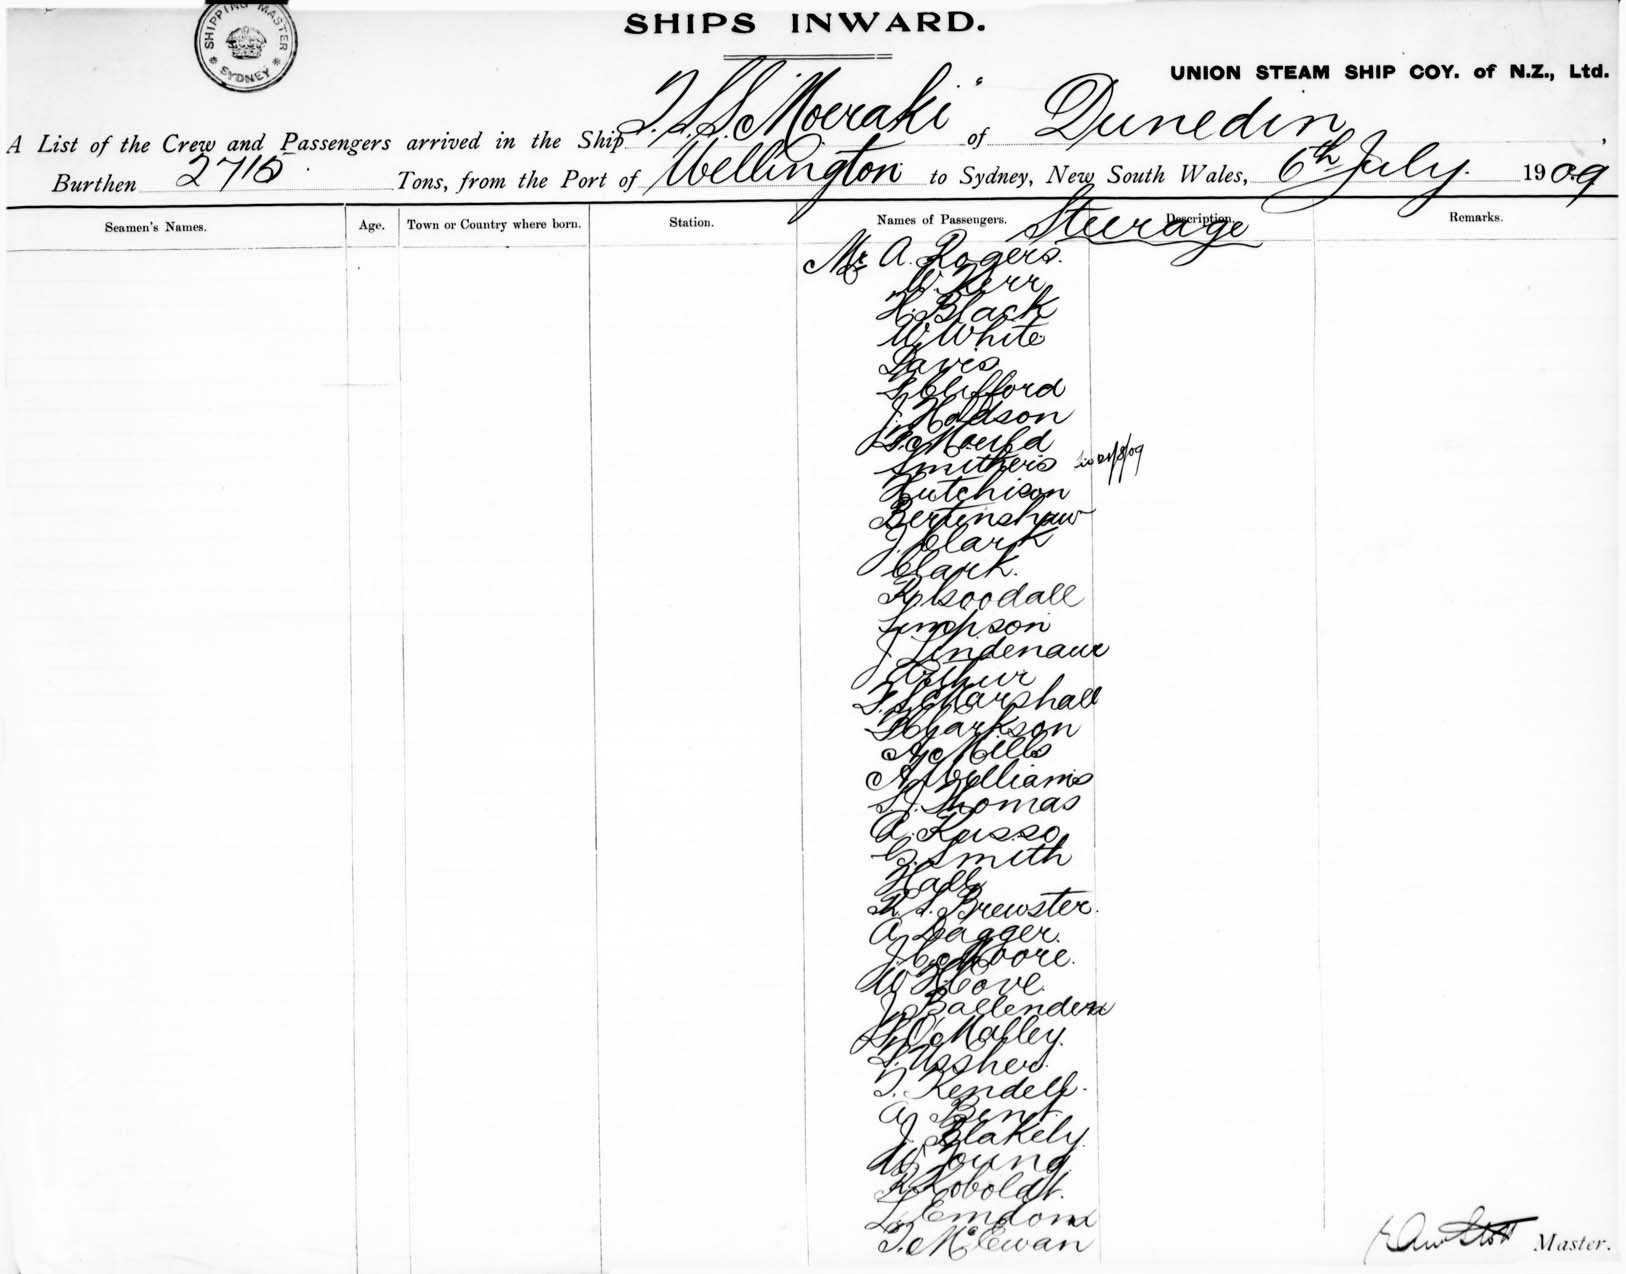 SHIPPING MASTER
SYDNEY
SHIPS INWARD.
UNION STEAM SHIP COY. of N.Z., Ltd.
A List of the Crew and Passengers arrived in the Ship T.S.S. "Moeraki" of Dunedin,
Burthen 2715 Tons, from the Port of Wellington to Sydney, New South Wales, 6th July. 1909
Seamen's Names. Age. Town or Country where born. Station. Names of Passengers. Steerage Description. Remarks.
Mr A. Rogers.
W. Kerr
H. Black
W. White
Davis
Clifford
J. Hodson
Mould
Smithers
Hutchison
Bertinshaw
J. Clark
Clark.
Goodall
Simpson
J. Lindenaur
Arthur
Marshall
Clarkson
A. Mills
A. Williams
S. J. Thomas
A. Russo
G. Smith
Hall
R. S. Brewster.
A. Dagger.
J. C. Moore.
W. H. Cove.
J. Ballenden
O'Malley.
Ussher.
T. Kendell.
A. Bent.
J. Blakely.
W. Young.
Koboldt.
Emdon
T. McEwan
Master.